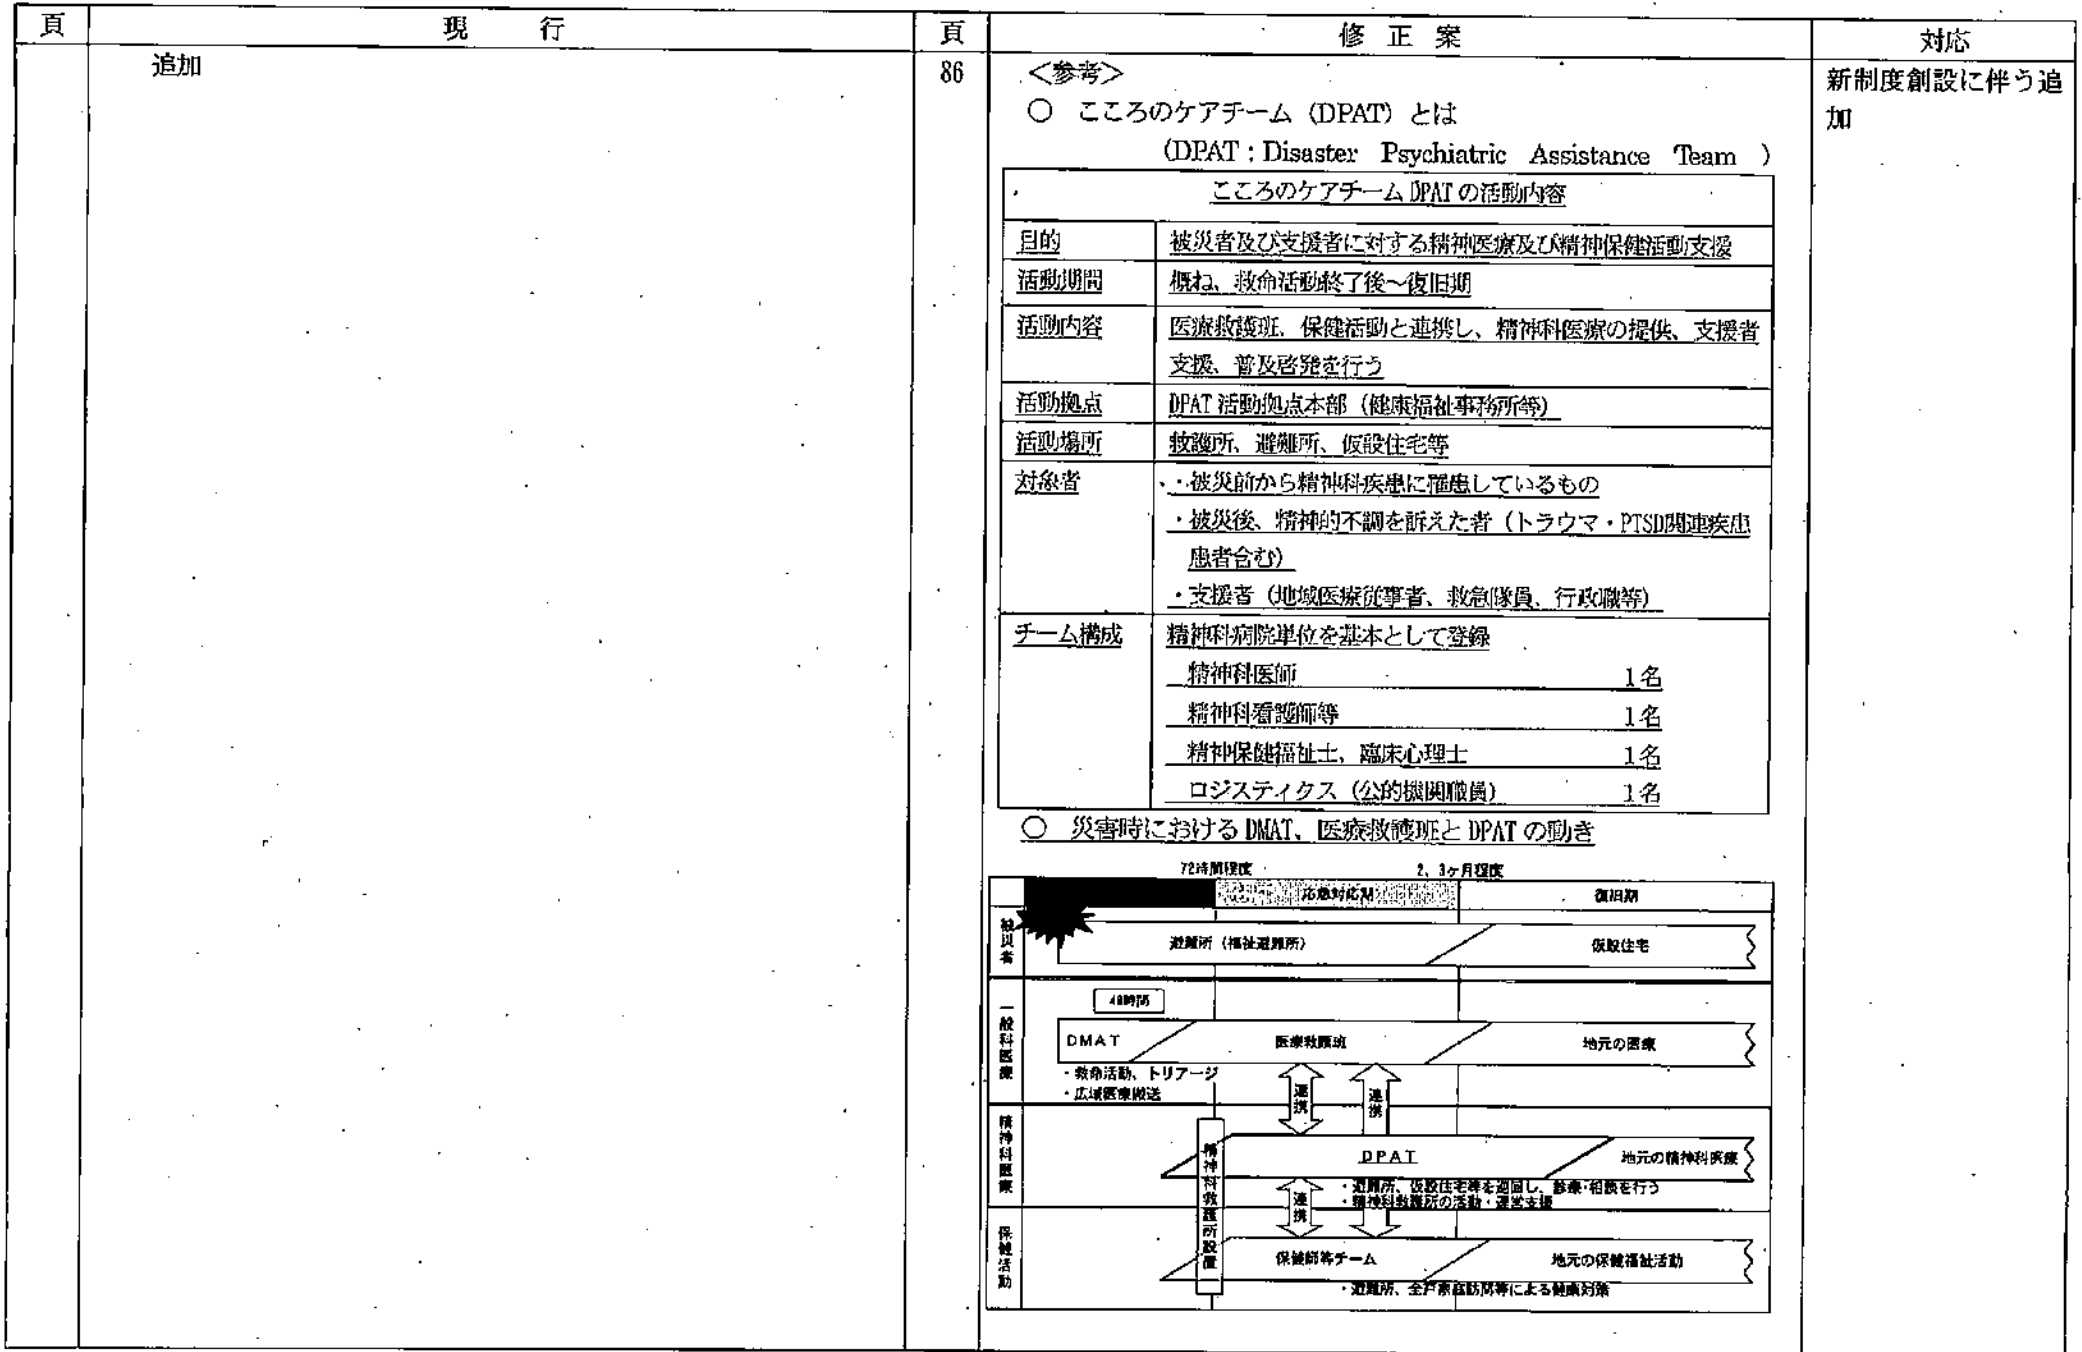 頁 現 行 頁 修 正 案 対応
追加
86
<参考>
○ こころのケアチーム（DPAT）とは
(DPAT：Disaster Psychiatric Assistance Team )
こころのケアチーム DPAT の活動内容
目的 被災者及び支援者に対する精神医療及び精神保健活動支援
活動期間 概ね、救命活動終了後～復旧期
活動内容 医療救護班、保健活動と連携し、精神科医療の提供、支援者
支援、普及啓発を行う
活動拠点 DPAT 活動拠点本部（健康福祉事務所等）
活動場所 救護所、避難所、仮設住宅等
対象者 ・被災前から精神科疾患に罹患しているもの
・被災後、精神的不調を訴えた者（トラウマ・PTSD関連疾患
患者含む）
・支援者（地域医療従事者、救急隊員、行政職等）
チーム構成 精神科病院単位を基本として登録
精神科医師 1名
精神科看護師等 1名
精神保健福祉士、臨床心理士 1名
ロジスティクス（公的機関職員） 1名
○ 災害時における DMAT、医療救護班と DPAT の動き
72時間程度 2、3ヶ月程度
応急対応期 復旧期
被災者 避難所（福祉避難所） 仮設住宅
48時間
一般科医療 DMAT 医療救護班 地元の医療
・救命活動、トリアージ
・広域医療搬送
連携 連携
精神科医療 精神科救護所設置 DPAT 地元の精神科医療
・避難所、仮設住宅等を巡回し、診療・相談を行う
・精神科救護所の活動・運営支援
連携
保健活動 保健師等チーム 地元の保健福祉活動
・避難所、全戸家庭訪問等による健康対策
新制度創設に伴う追
加